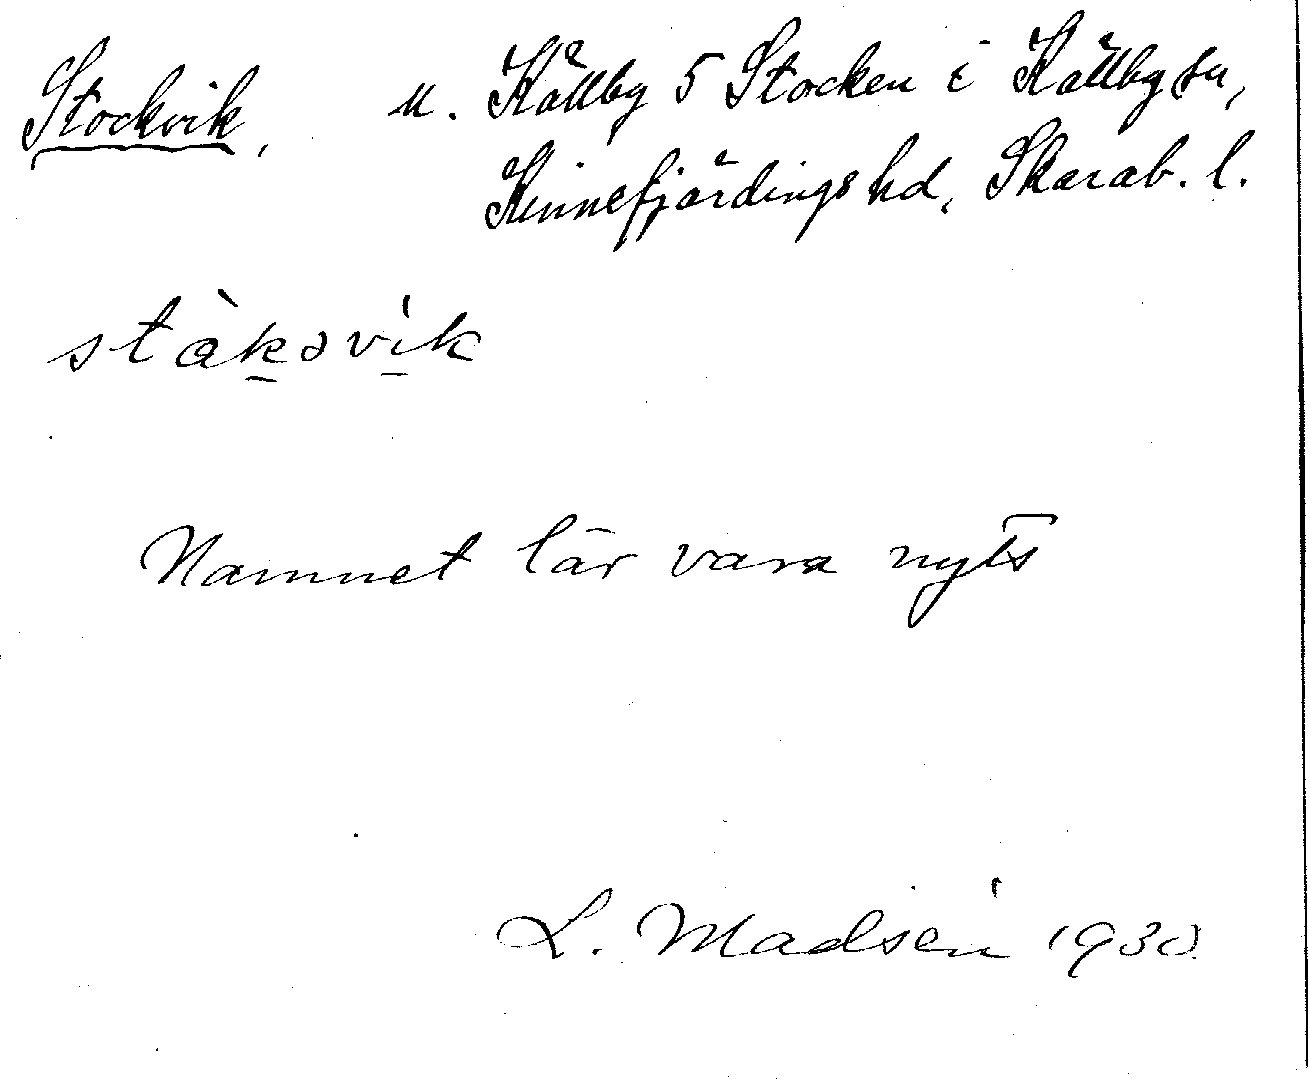 Stockvik, u. Källby 5 Stocken i Källby sn,
Kinnefjärdings hd, Skarab. l.
stàkəvi̍k
Namnet lär vara nytt
L. Madsén 1930